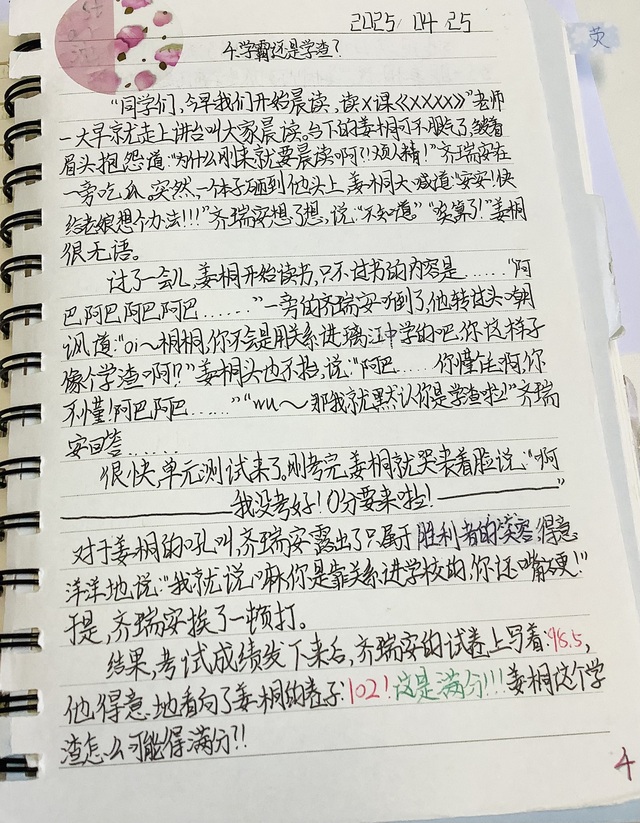 2025 04 25
荧
4.学霸还是学渣？
"同学们，今早我们开始晨读，读X课《XXXX》"老师
一大早就走上讲台叫大家晨读。台下的姜桐可不服气了，皱着
眉头抱怨道："为什么刚来就要晨读啊？！烦人精！"齐瑞安在
一旁吃瓜。突然，一本子砸到他头上，姜桐大喊道："安安！快
给老娘想个办法！！！"齐瑞安想了想，说："不知道。""哎算了！"姜桐
很无语。
过了一会儿，姜桐开始读书，只不过书的内容是……"阿
巴阿巴阿巴阿巴……"一旁的齐瑞安听到了，他转过头嘲
讽道："oi～桐桐，你不会是用关系进璃江中学的吧，你这样子
像个学渣啊！？"姜桐头也不抬，说："阿巴……你懂住啊，你
不懂！阿巴阿巴……""wu～那我就默认你是学渣啦！"齐瑞
安回答……
很快，单元测试来了。刚考完，姜桐就哭丧着脸说："啊
————我没考好！0分要来啦！————"
对于姜桐的吼叫，齐瑞安露出了只属于胜利者的笑容，得意
洋洋地说："我就说嘛，你是靠关系进学校的，你还嘴硬！"
于是，齐瑞安挨了一顿打。
结果，考试成绩发下来后，齐瑞安的试卷上写着：98.5，
他得意地看向了姜桐的卷子：102！这是满分！！！姜桐这个学
渣怎么可能得满分？！
4